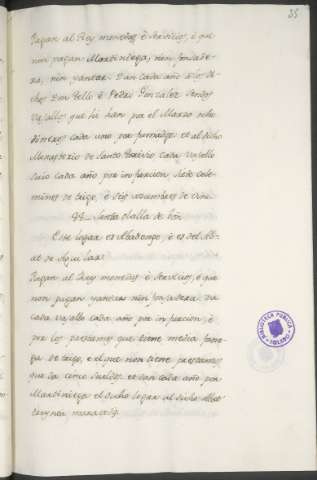 35
Pagan al Rey monedas è servicios, è que
non pagan Martiniega, nin fonsade-
ra, nin yantar. Dan cada año à los di-
chos Don Tello è Pedro Gonzalez
Vasallos que hi han por el Marzo ocho
dineros cada uno por e al dicho
Monasterio de Santo cada Vasallo
suio cada año por infurcion, siete cele-
mines de trigo, è seis de vino.
Santa olalla de
Este logar es Abadengo, è es del Ab-
at de Aguilar.
Pagan al Rey monedas è servicios, è que
non pagan yantar nin fonsadera, da
cada vasallo cada año por infurcion, è
por los prestamos que tiene media fane-
ga de trigo, è el que non tiene prestamos
que da cinco sueldos, et dan cada año por
Martiniega el dicho logar al dicho Abat
BIBLIOTECA PUBLICA
TOLEDO